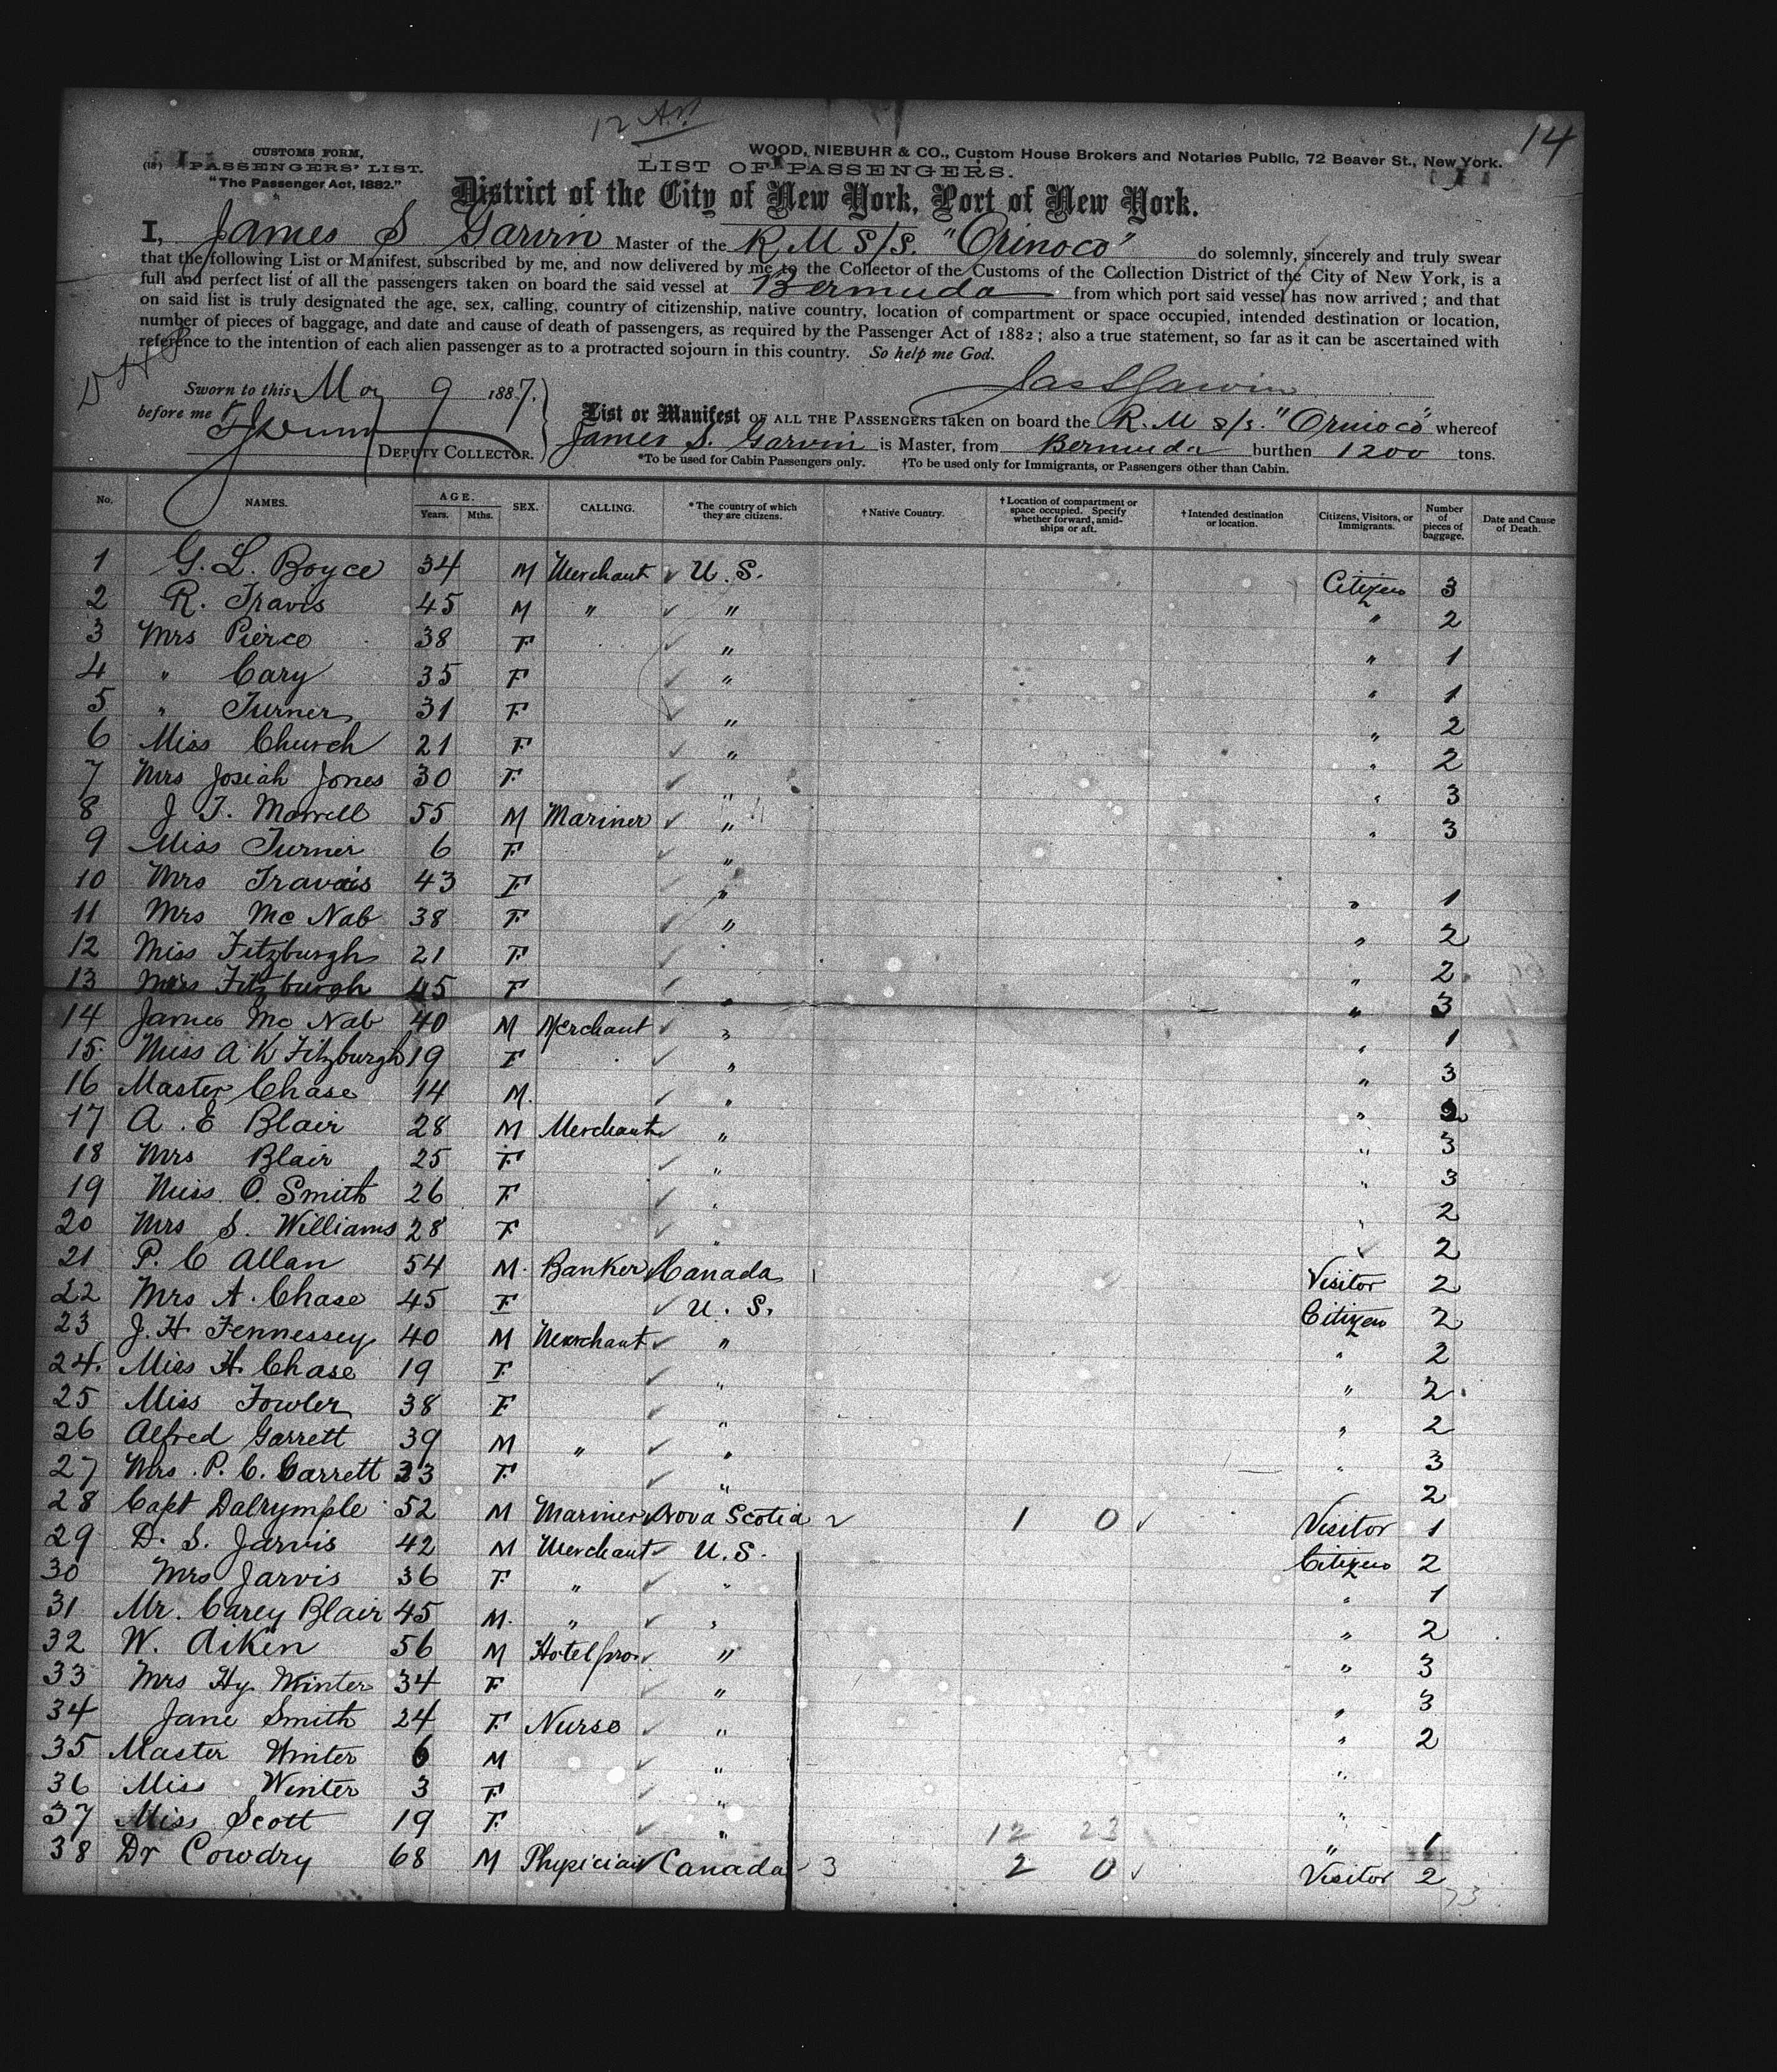 12 Apl
14
CUSTOMS FORM,
PASSENGERS' LIST.
"The Passenger Act, 1882."
WOOD, NIEBUHR & CO., Custom House Brokers and Notaries Public, 72 Beaver St., New York.
LIST OF PASSENGERS.
District of the City of New York, Port of New York.
I, James S Garvin Master of the R M S/S. "Orinoco" do solemnly, sincerely and truly swear
that the following List or Manifest, subscribed by me, and now delivered by me to the Collector of the Customs of the Collection District of the City of New York, is a
full and perfect list of all the passengers taken on board the said vessel at Bermuda from which port said vessel has now arrived; and that
on said list is truly designated the age, sex, calling, country of citizenship, native country, location of compartment or space occupied, intended destination or location,
number of pieces of baggage, and date and cause of death of passengers, as required by the Passenger Act of 1882; also a true statement, so far as it can be ascertained with
reference to the intention of each alien passenger as to a protracted sojourn in this country. So help me God.
Jas S Garvin
Sworn to this May 9 1887.
before me
DEPUTY COLLECTOR.
List or Manifest OF ALL THE PASSENGERS taken on board the R. M S/S. "Orinoco" whereof
James S. Garvin is Master, from Bermuda burthen 1200 tons.
*To be used for Cabin Passengers only. †To be used only for Immigrants, or Passengers other than Cabin.
No. NAMES. AGE. Years. Mths. SEX. CALLING. *The country of which they are citizens. †Native Country. †Location of compartment or space occupied. Specify whether forward, amidships or aft. †Intended destination or location. Citizens, Visitors, or Immigrants. Number of pieces of baggage. Date and Cause of Death.
1 G. L. Boyce 34 M Merchant U.S. Citizen 3
2 R. Travis 45 M " " " 2
3 Mrs Pierce 38 F " " 1
4 " Cary 35 F " " 1
5 " Turner 31 F " " 2
6 Miss Church 21 F " " 2
7 Mrs Josiah Jones 30 F " " 3
8 J T. Morrell 55 M Mariner " " 3
9 Miss Turner 6 F "
10 Mrs Travais 43 F " " 1
11 Mrs Mc Nab 38 F " " 2
12 Miss Fitzburgh 21 F " 2
13 Mrs Fitzburgh 45 F " " 3
14 James Mc Nab 40 M Merchant " " 1
15 Miss A K Fitzburgh 19 F " " 3
16 Master Chase 14 M. " " 2
17 A. E Blair 28 M Merchant " " 3
18 Mrs Blair 25 F " " 3
19 Miss O. Smith 26 F " " 2
20 Mrs S. Williams 28 F " 2
21 P. C Allan 54 M. Banker Canada 1 Visitor 2
22 Mrs A. Chase 45 F U. S. Citizen 2
23 J. H Fennessey 40 M Merchant " " 2
24. Miss H. Chase 19 F " " 2
25 Miss Fowler 38 F " " 2
26 Alfred Garrett 39 M " " " 3
27 Mrs. P. C. Garrett 33 F " 2
28 Capt Dalrymple 52 M Mariner Nova Scotia 2 1 0 Visitor 1
29 D. S. Jarvis 42 M Merchant U.S. Citizen 2
30 Mrs Jarvis 36 F " " " 1
31 Mr. Carey Blair 45 M. " " " 2
32 W. Aiken 56 M Hotel pro. " " 3
33 Mrs Hy Winter 34 F " " 3
34 Jane Smith 24 F Nurse " " 2
35 Master Winter 6 M " "
36 Miss Winter 3 F " "
37 Miss Scott 19 F " " 1
12 23
38 Dr Cowdry 68 M Physician Canada 3 2 0 Visitor 2
73